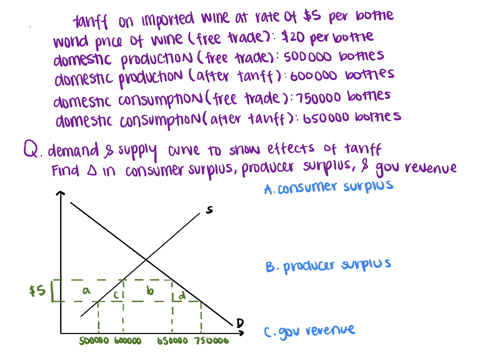 tariff on imported wine at rate of $5 per bottle
world price of wine (free trade): $20 per bottle
domestic production (free trade): 500000 bottles
domestic production (after tariff): 600000 bottles
domestic consumption (free trade): 750000 bottles
domestic consumption (after tariff): 650000 bottles
Q. demand & supply curve to show effects of tariff
Find Δ in consumer surplus, producer surplus, & gov revenue
A. consumer surplus
S
B. producer surplus
$5 a c b d
D
C. gov revenue
500000 600000 650000 750000